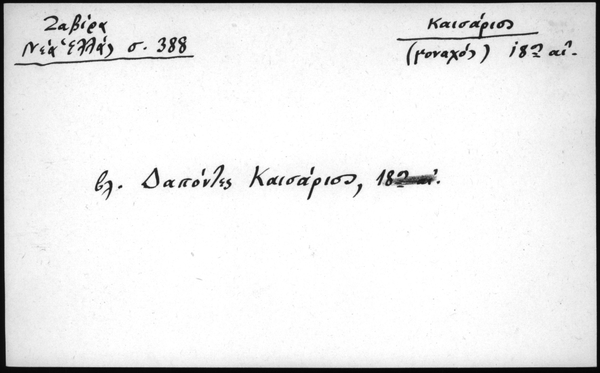 Ζαβίρα
Νέα Ἑλλάς σ. 388
Καισάριος
(μοναχός) 18ος αἰ.
βλ. Δαπόντες Καισάριος,